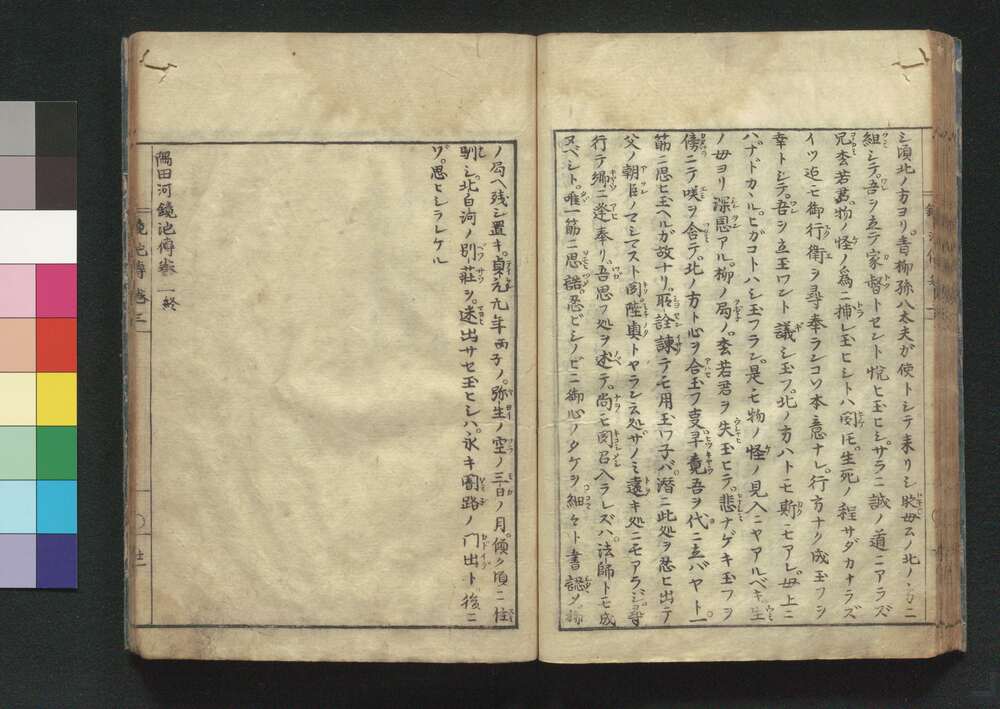 シ頃北ノ方ヨリ。青柳弥八太夫ガ使トシテ来リシ时母ムノ北ノ方ニ
組シテ。吾ヲ立テ家督トセント悦ヒ玉ヒシ。ザラニ誠ノ道ニアラズ
兄杢若君物ノ怪ノ為ニ捕レ玉ヒシトハ囙ㇳモ。生死ノ程サダカナラズ
イツ迄モ御行衛ヲ尋奉ランコソ本意ナレ。行方ナク成玉フシ
幸トシテ。吾ヲ立玉ワント議シ玉フ。北ノ方ハトモ斯ニモアレ。母上ニ
ハナドカヽルヒガコトハシ玉フラン。是モ物ノ怪ノ見入ニヤアルベキ生
ノ母ヨリ深恩アル。柳ノ局ノ。杢若君ヲ失玉ヒテ。悲ナゲキ玉フヲ
傍ニテ咲ヲ含テ。北ノ方ト心ヲ合玉フ㕝早竟吾ヲ代ニ立バヤト。一
筋ニ思ヒ玉ヘルガ故ナリ。所詮諫テモ用玉ワ子バ。潜ニ此処ヲ忍ヒ出テ
父ノ朝臣ノマシマスト囙陸奥トヤランス処ザノミ遠キ処ニモアラジ。尋
行テ郷ニ逢奉リ。吾思フ処ヲ述テ。尚モ囙召入ラレズハ。法師トモ成
ヌベシト。唯一筋ニ思詰忍ビシノビニ御心ノタケヲ細々ト書認メ。柳
ノ局ヘ残シ置キ。貞元九年丙子ノ。弥生ノ空ノ三日ノ月。傾ク頃ニ住
馴シ。北白河ノ別荘ヲ。迷出サセ玉ヒシハ。永キ闇路ノ門出ト。後ニ
ゾ。思ヒシラレケル
隅田河鏡池傳巻一終